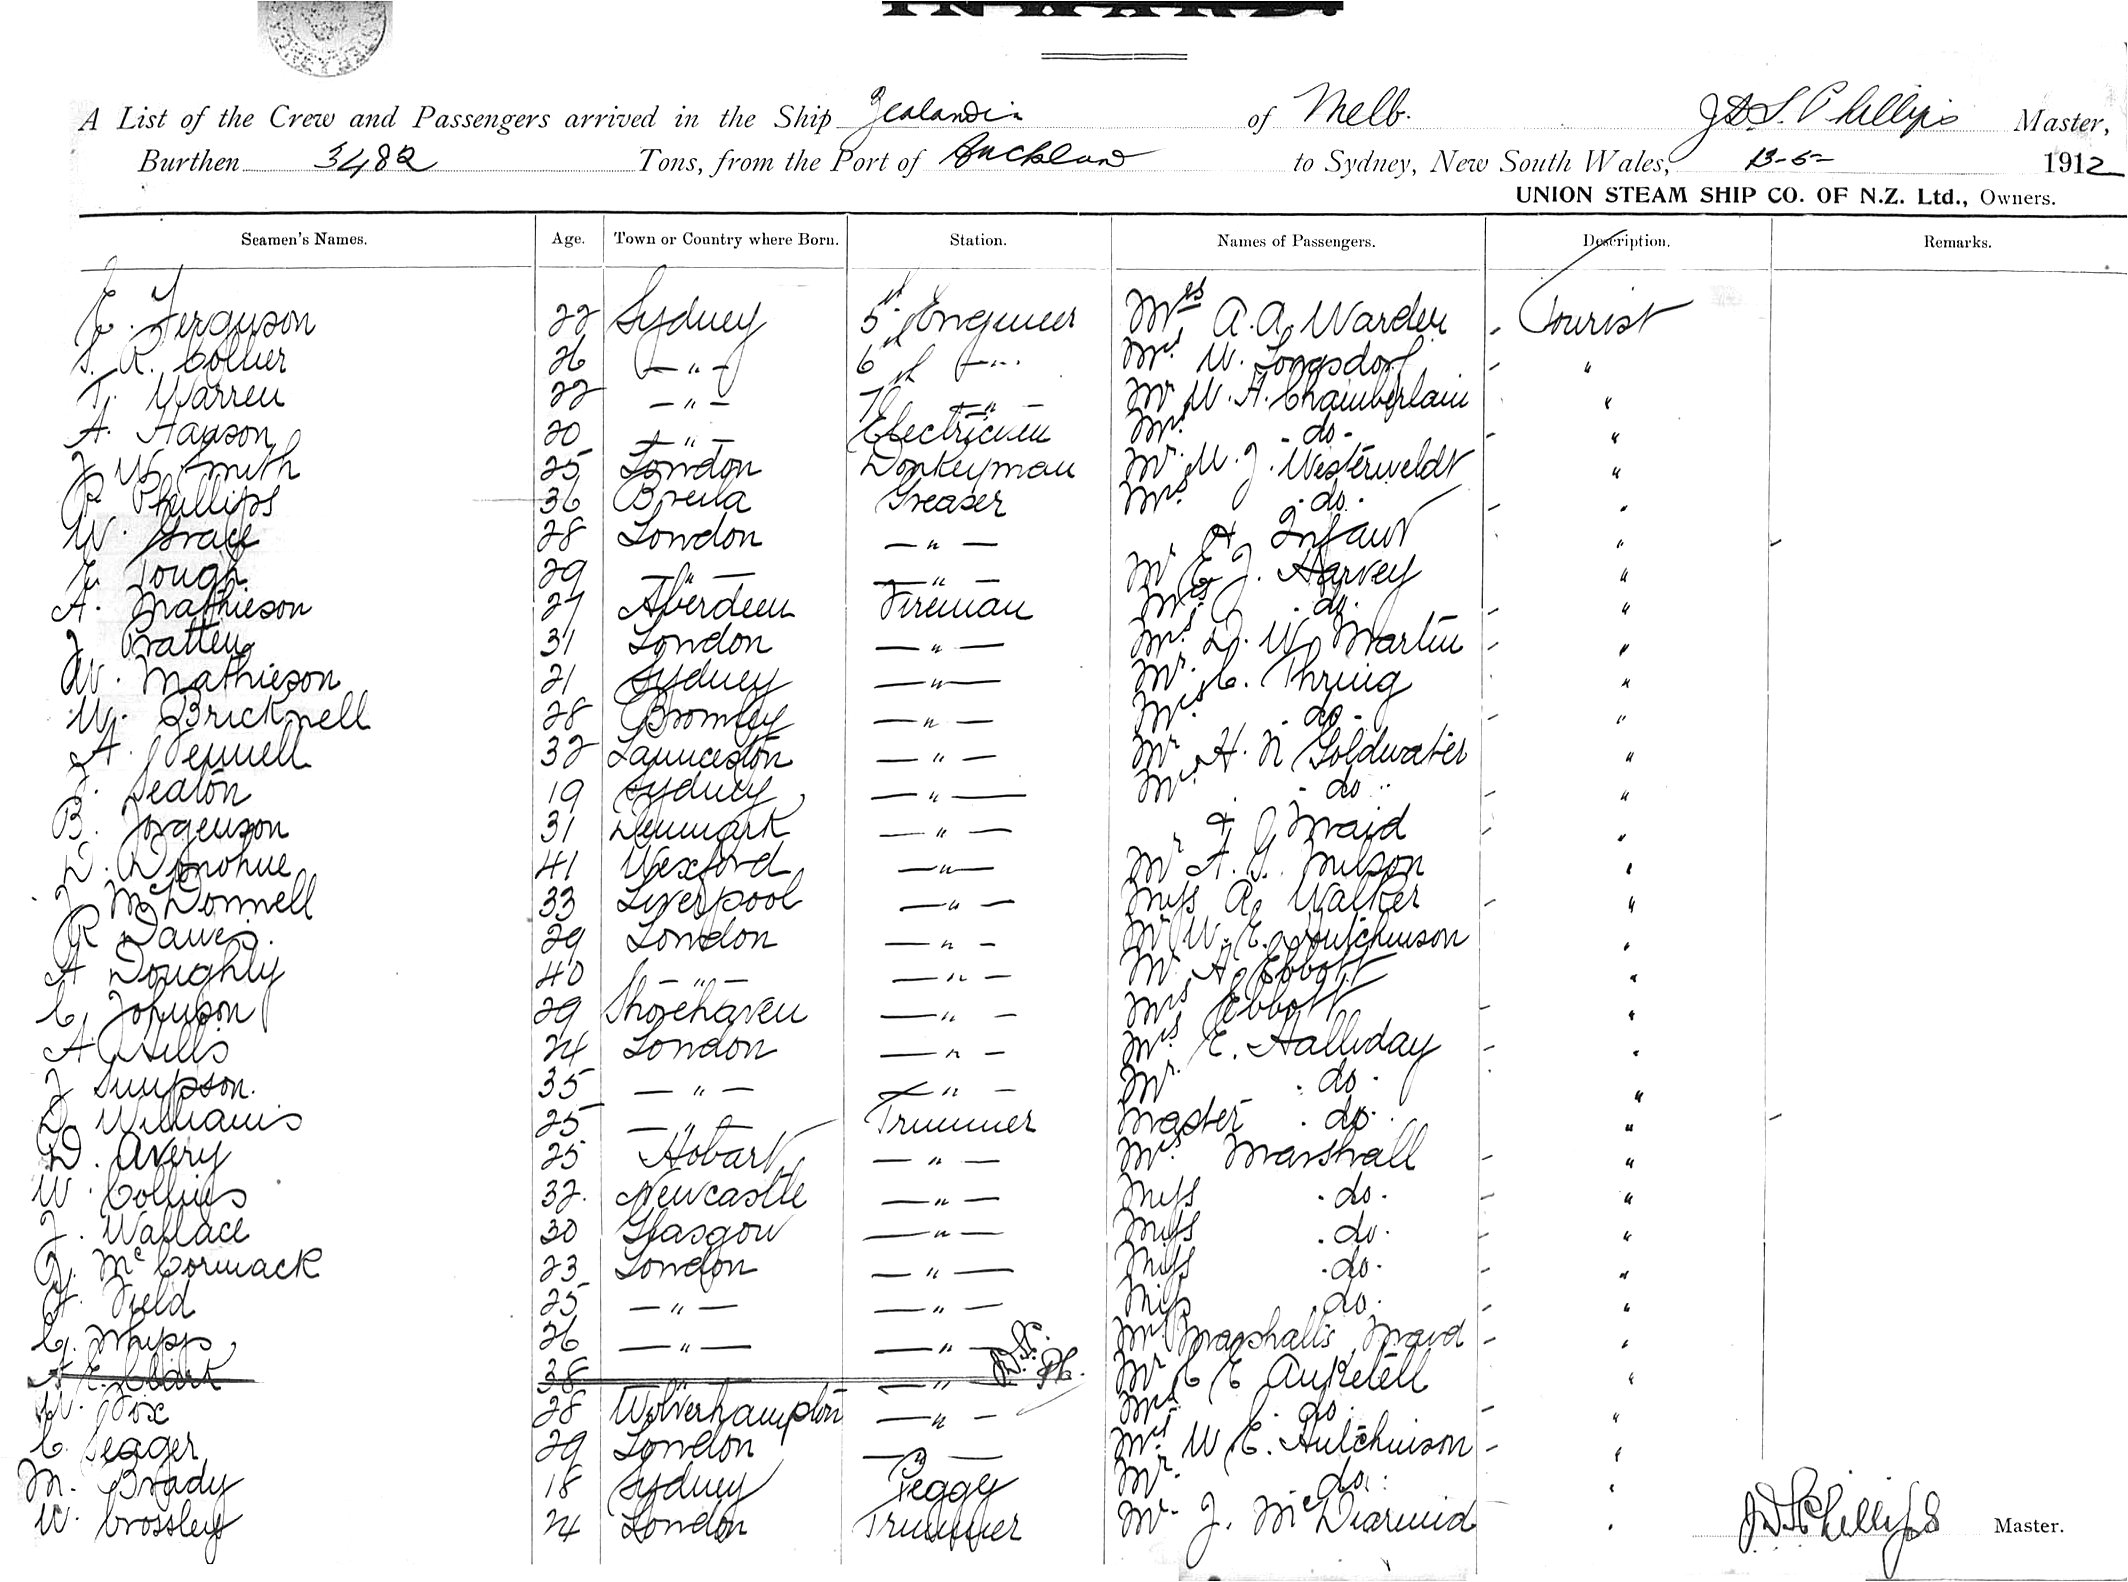 INWARD.
A List of the Crew and Passengers arrived in the Ship Zealandia of Melb. Phillips Master,
Burthen 3482 Tons, from the Port of Auckland to Sydney, New South Wales, 13-5- 1912
UNION STEAM SHIP CO. OF N.Z. Ltd., Owners.
Seamen's Names. Age. Town or Country where Born. Station. Names of Passengers. Description. Remarks.
Ferguson 22 Sydney 5th Engineer Mrs A. A. Warden Tourist
R. Collier 26 — " — 6th — " Mrs W. Longsdorf "
T. Warren 22 — " — 7th — " — Mr W. A. Chamberlain "
A. Hanson 20 — " — Electrician Mrs - do - "
J W Smith 25 London Donkeyman Mr W. J. Westerveldt "
P Phillips 36 Breila Greaser Mrs . do . "
W. Grace 28 London — " — & Infant "
Tough 29 — " — — " — Mr E J. Harvey "
A. Mathieson 27 Aberdeen Fireman Mrs . do. "
J Pratten 31 London — " — Mrs D. W. Martin "
W. Mathieson 21 Sydney — " — Mr. C. Thring "
W. Bricknell 28 Bromley — " — Mrs - do - "
A. Pennell 32 Launceston — " — Mr H. N Goldwater "
Seaton 19 Sydney — " — Mrs - do - "
B. Jorgenson 31 Denmark — " — & Maid "
D. Donohue 41 Wexford — " — Mr A. G. Milson "
J McDonnell 33 Liverpool — " — Miss A. Walker "
R Davies. 29 London — " — Mr W. E. Hutchinson "
A Doughty 40 — " — — " — Mr A. Ebbott "
C. Johnson 29 Shorehaven — " — Mrs Ebbott "
A Hills 24 London — " — Mrs E. Halliday "
J Simpson. 35 — " — — " — Mr . do . "
D. Williams 25 — " — Trimmer Master . do . "
D. Avery 25 Hobart — " — Mrs Marshall "
W. Collins 32. Newcastle — " — Miss . do . "
J. Wallace 30 Glasgow — " — Miss . do . "
McCormack 23 London — " — Miss . do . "
Field 25 — " — — " — Miss do. "
G. Whipps 26 — " — — " — Marshall's Maid "
A E. Clark 38 " — " — Mr C E Auketell "
Fox 28 Wolverhampton — " — Mrs do. "
C. Seager 29 London — " — Mrs. W E. Hutchinson "
M. Brady 18 Sydney Peggy Mr. do. "
W. Crossley 24 London Trimmer Mr. J. McDiarmid "
Phillips Master.